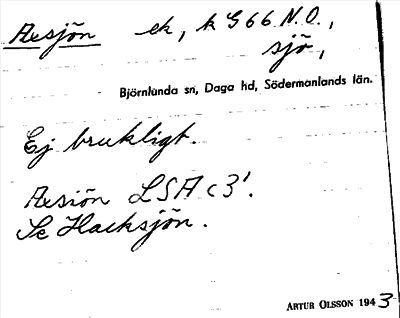 Aesjön ek, k G66 N.O.,
sjö,
Björnlunda sn, Daga hd, Södermanlands län.
Ej brukligt.
Aesiön LSA c3'.
Se Hacksjön.
ARTUR OLSSON 1943